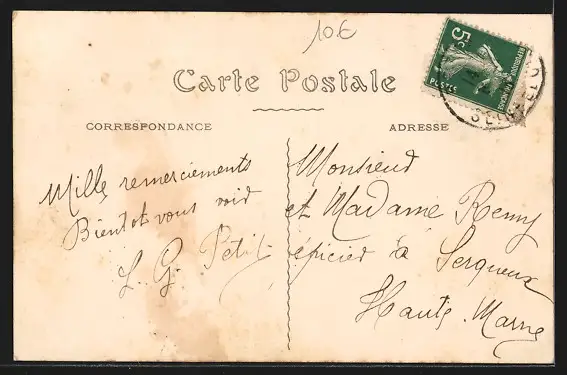 10€
Carte Postale
CORRESPONDANCE
ADRESSE
5c
POSTES
Mille remerciements
Bientot vous voir
L. G. Petit
Monsieur
et Madame Remy
épicier à
Serqueux
Haute Marne